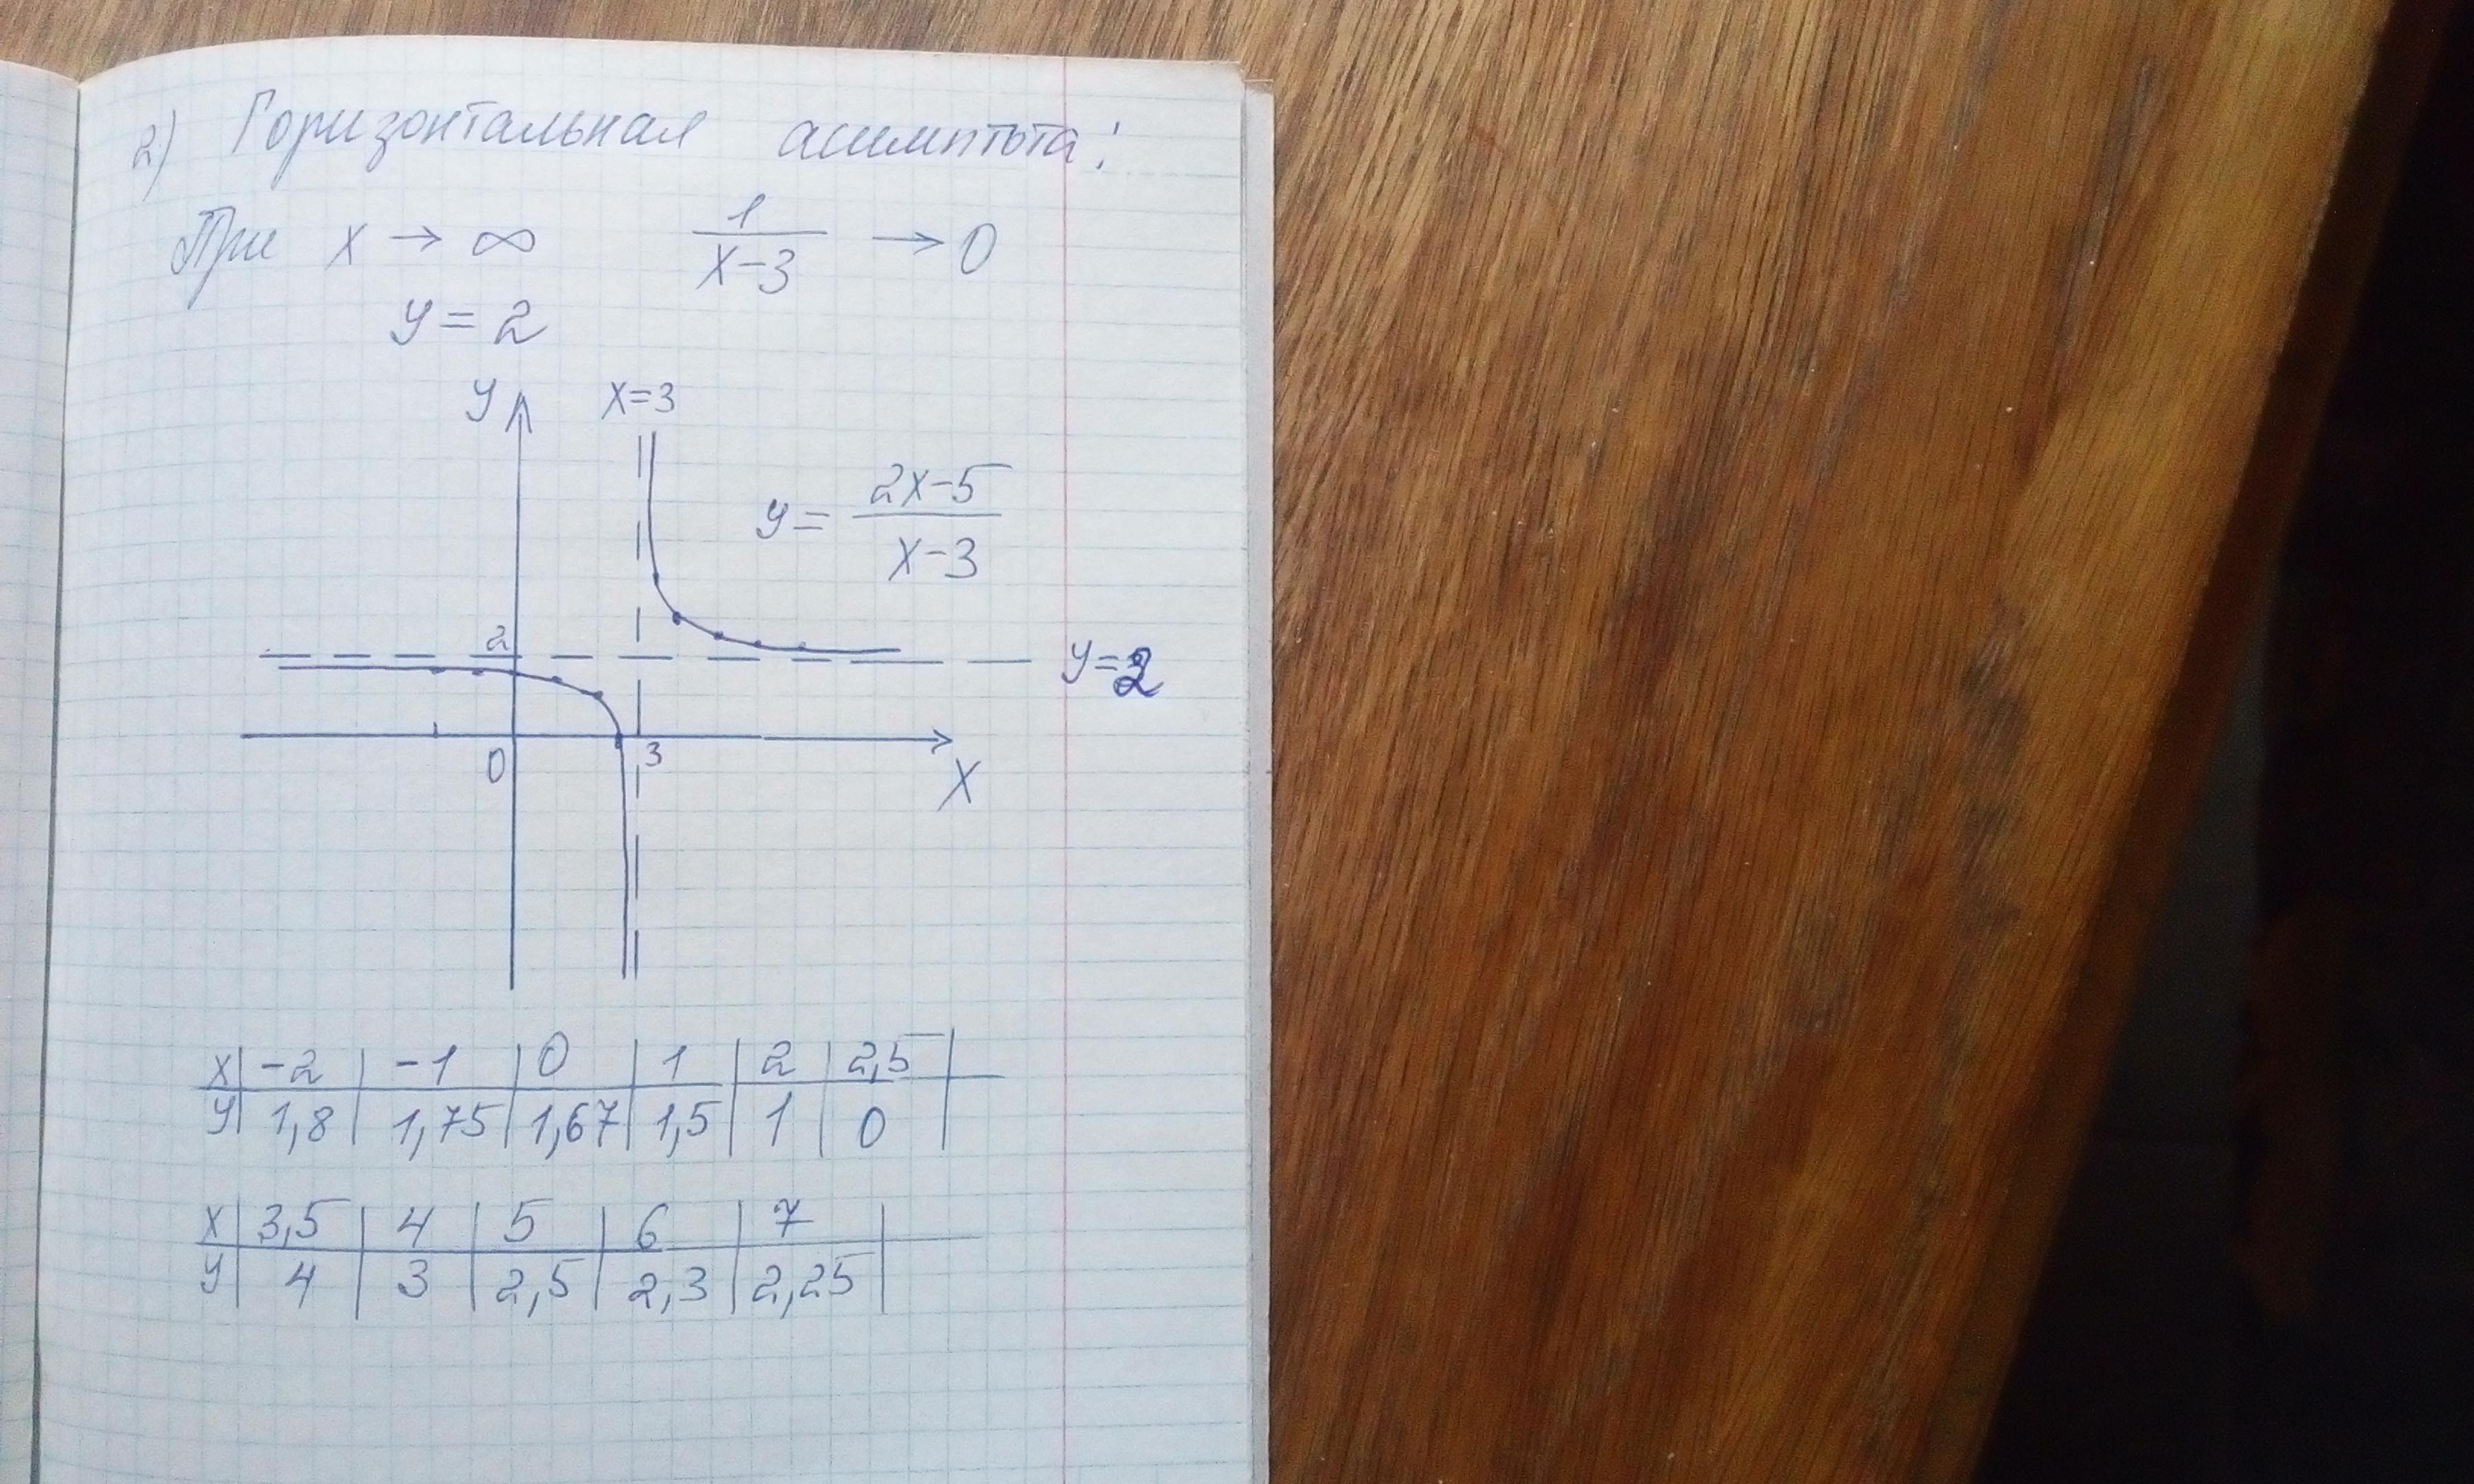 2) Горизонтальная асимптота:
При x → ∞ 1/(x-3) → 0
y = 2
y x=3
y = (2x-5)/(x-3)
2
y=2
0 3
x
x | -2 | -1 | 0 | 1 | 2 | 2,5 |
y | 1,8 | 1,75 | 1,67 | 1,5 | 1 | 0 |
x | 3,5 | 4 | 5 | 6 | 7 |
y | 4 | 3 | 2,5 | 2,3 | 2,25 |